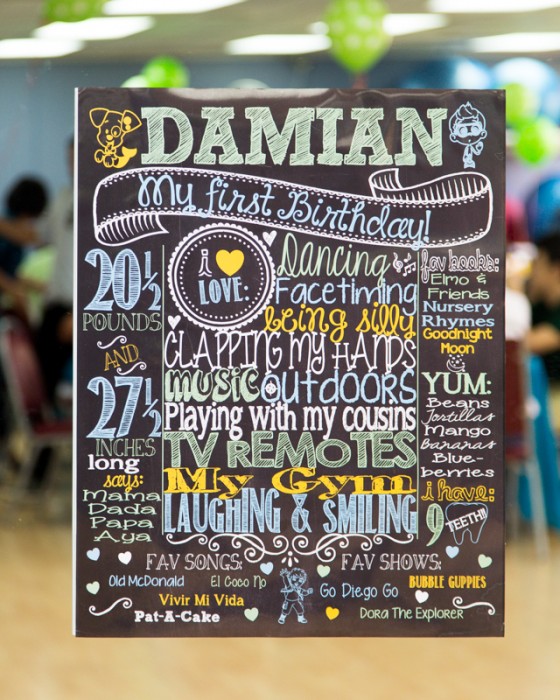 DAMIAN
My first Birthday!
20 1/2
POUNDS
AND
27 1/2
INCHES
long
says:
Mama
Dada
Papa
Aya
i ♥
LOVE:
Dancing
Facetiming
being silly
CLAPPING MY HANDS
music outdoors
Playing with my cousins
TV REMOTES
My Gym
LAUGHING & SMILING
fav books:
Elmo &
Friends
Nursery
Rhymes
Goodnight
Moon
YUM:
Beans
Tortillas
Mango
Bananas
Blue-
berries
i have:
9 TEETH!!
FAV SONGS:
Old McDonald
El Coco No
Vivir Mi Vida
Pat-A-Cake
FAV SHOWS:
BUBBLE GUPPIES
Go Diego Go
Dora The Explorer